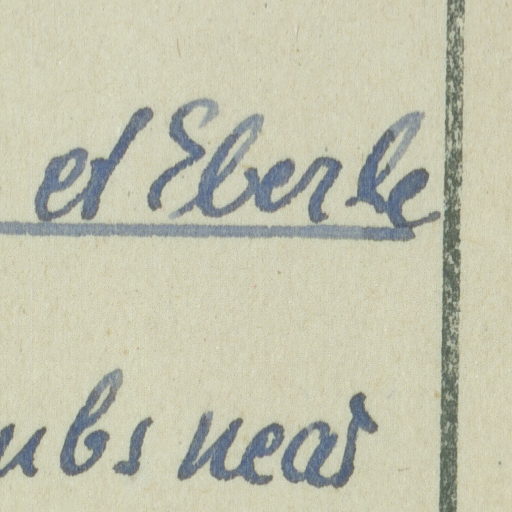 el Eberle
ubs near